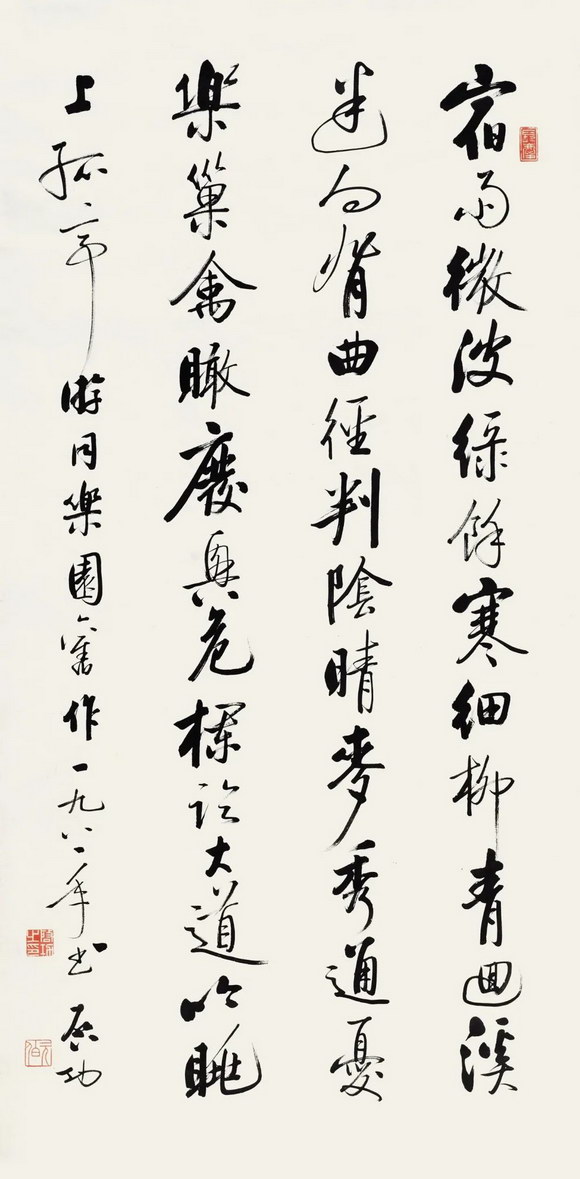 宿雨微波綠餘寒細柳青迴溪
迷向背曲徑判陰晴麥秀通憂
樂巢禽瞰廢興危欄大道吟眺
上孤亭 游同樂園舊作一九八一年书 启功